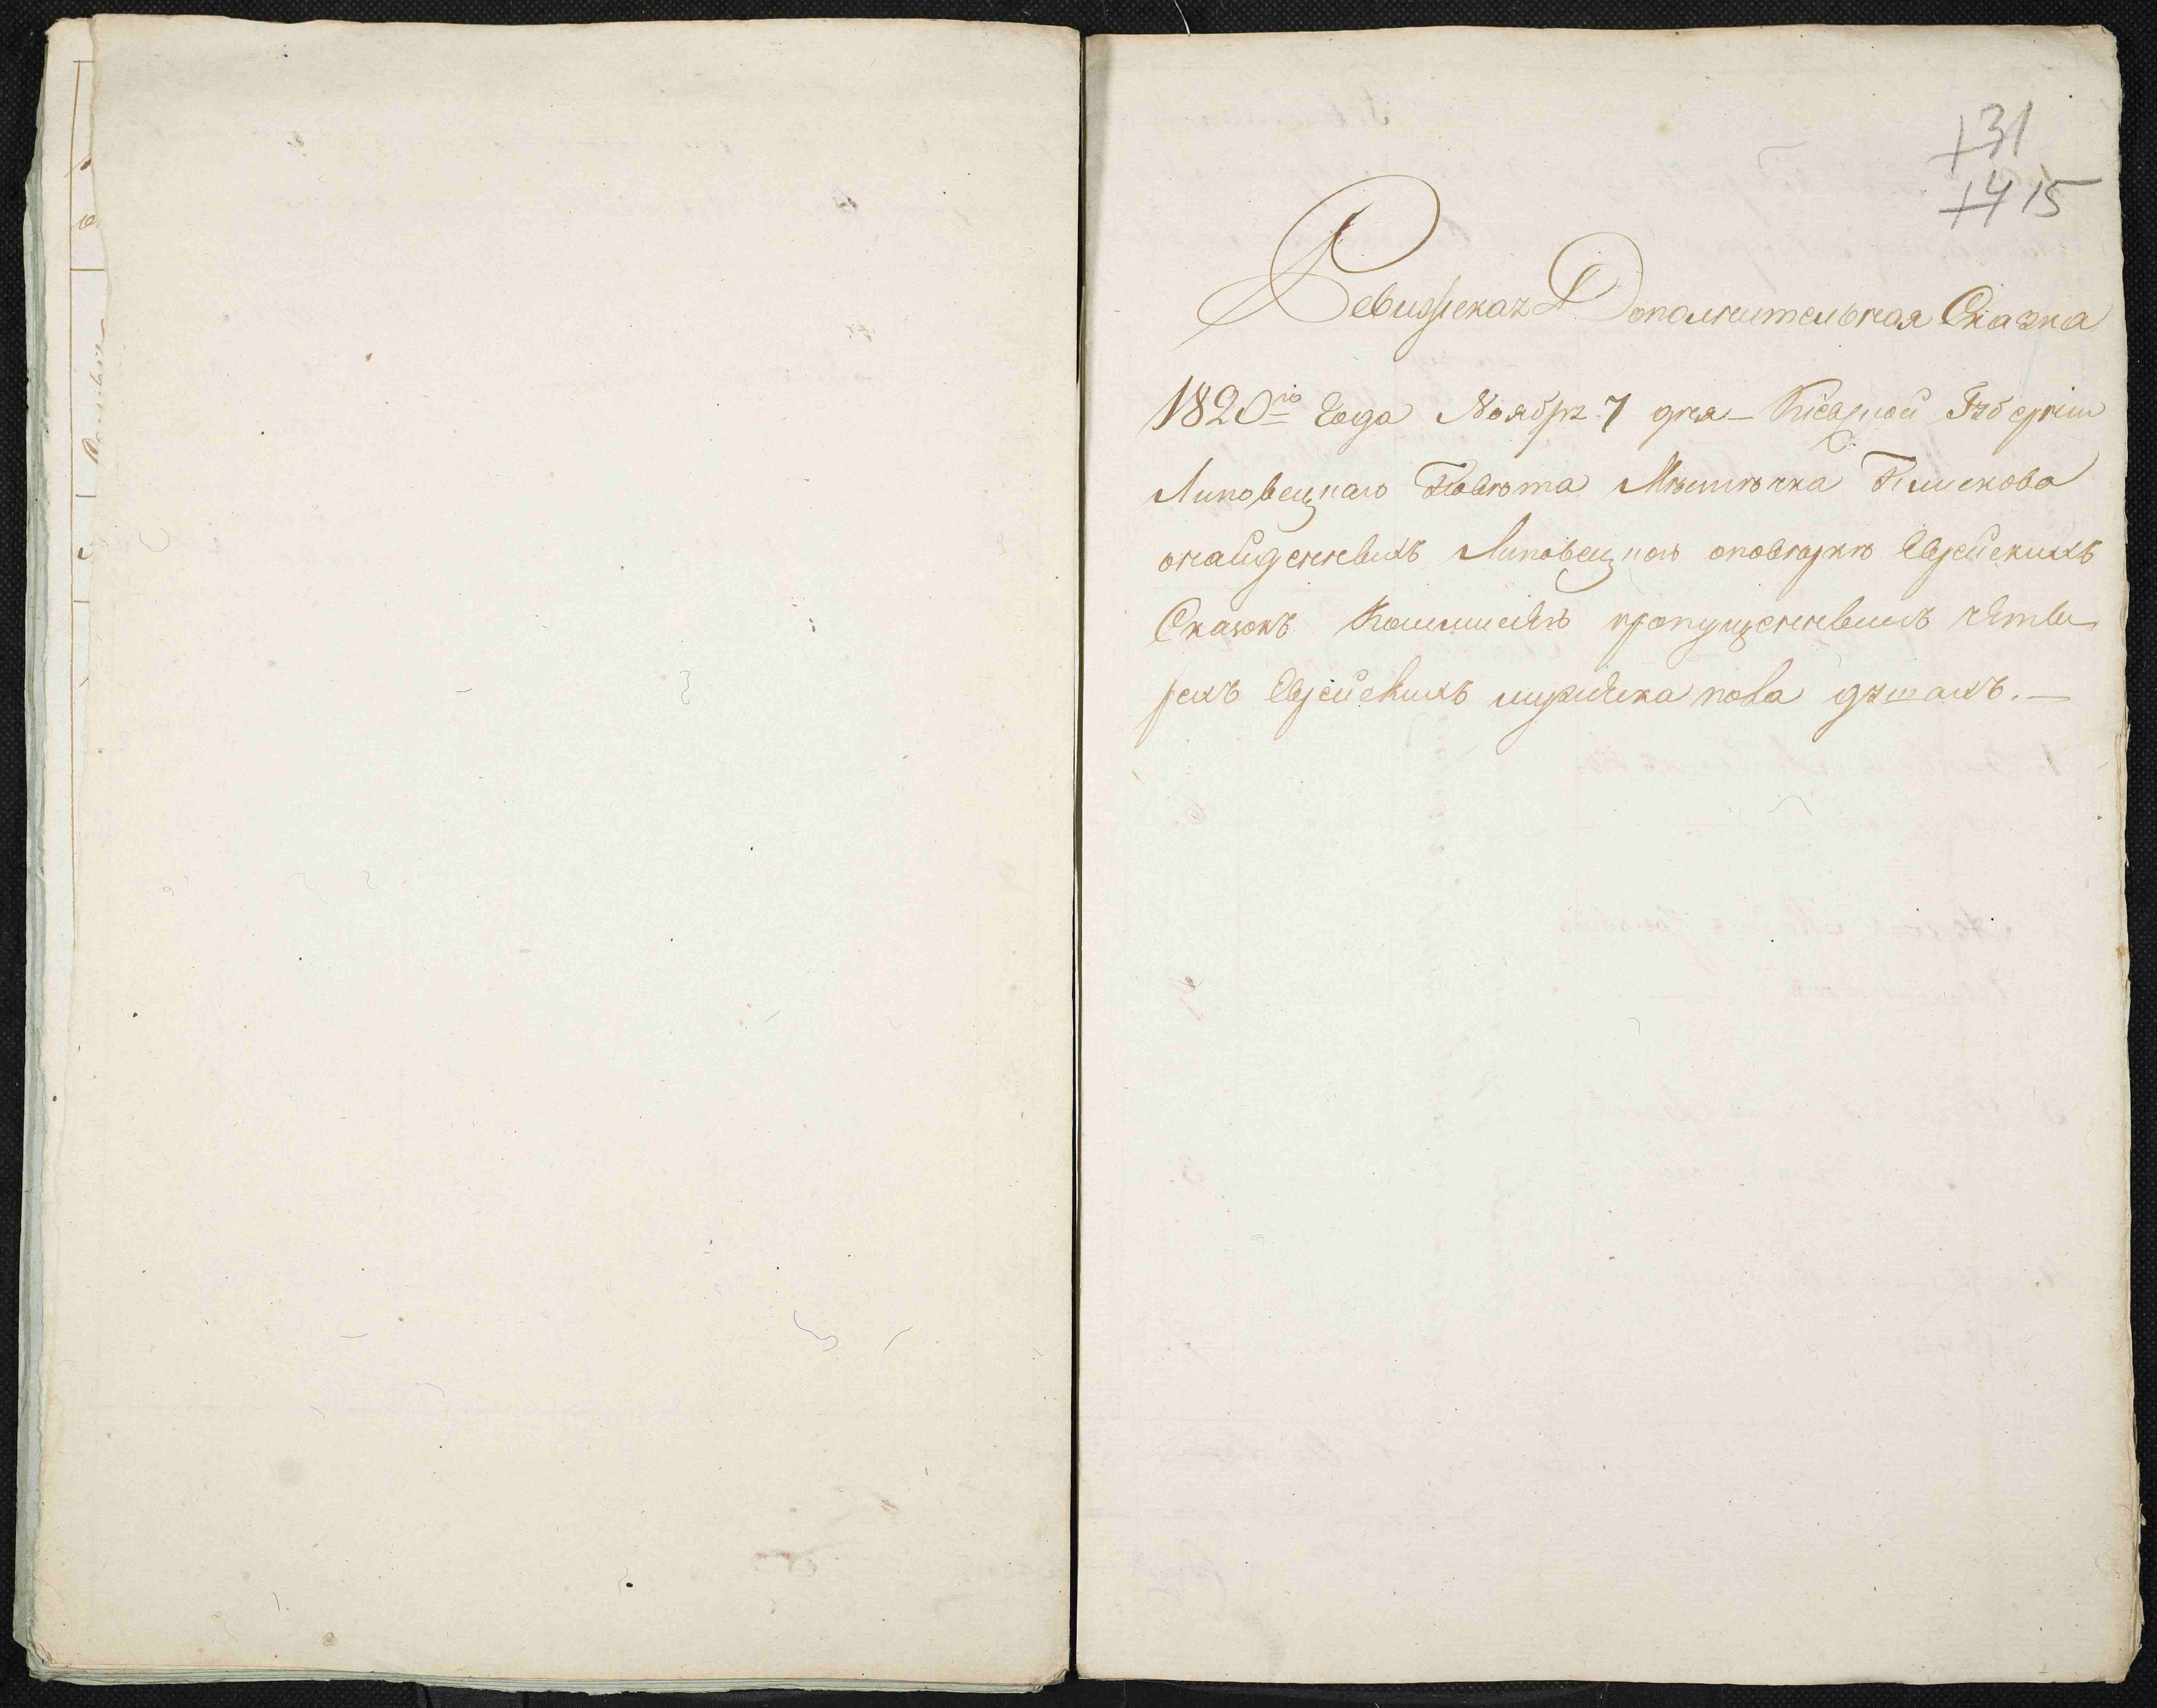 131
14 15
Ревизская Дополнительная Сказка
1820го Года Ноября 7 дня – Киевской Губернии
Липовецкаго Повѣта Мѣстѣчка Пискова
онайденныхъ Липовецкою оповѣркѣ Еврейскихъ
Сказокъ Коммисіею пропущенныхъ четы
рехъ Еврейскихъ мужеска пола душахъ. —